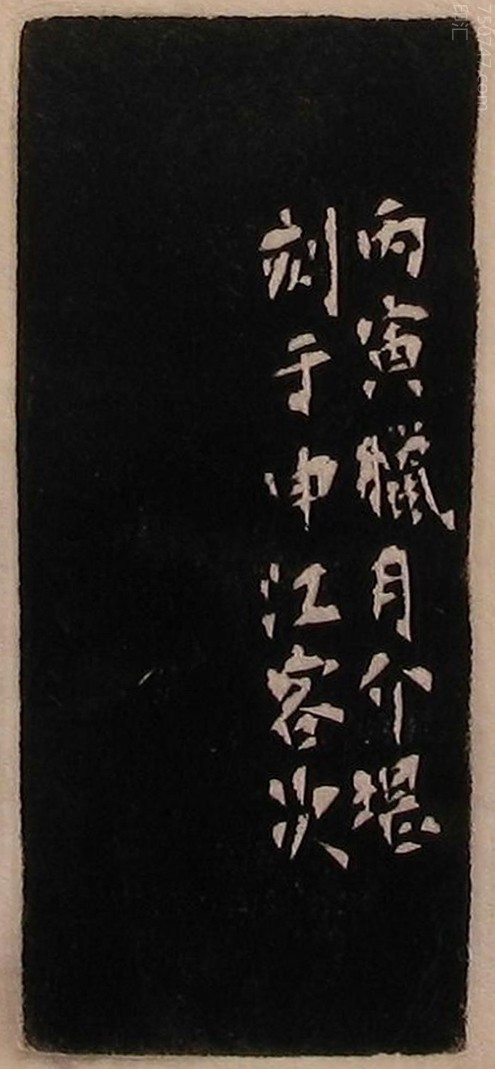 丙寅臘月介堪
刻于申江客次